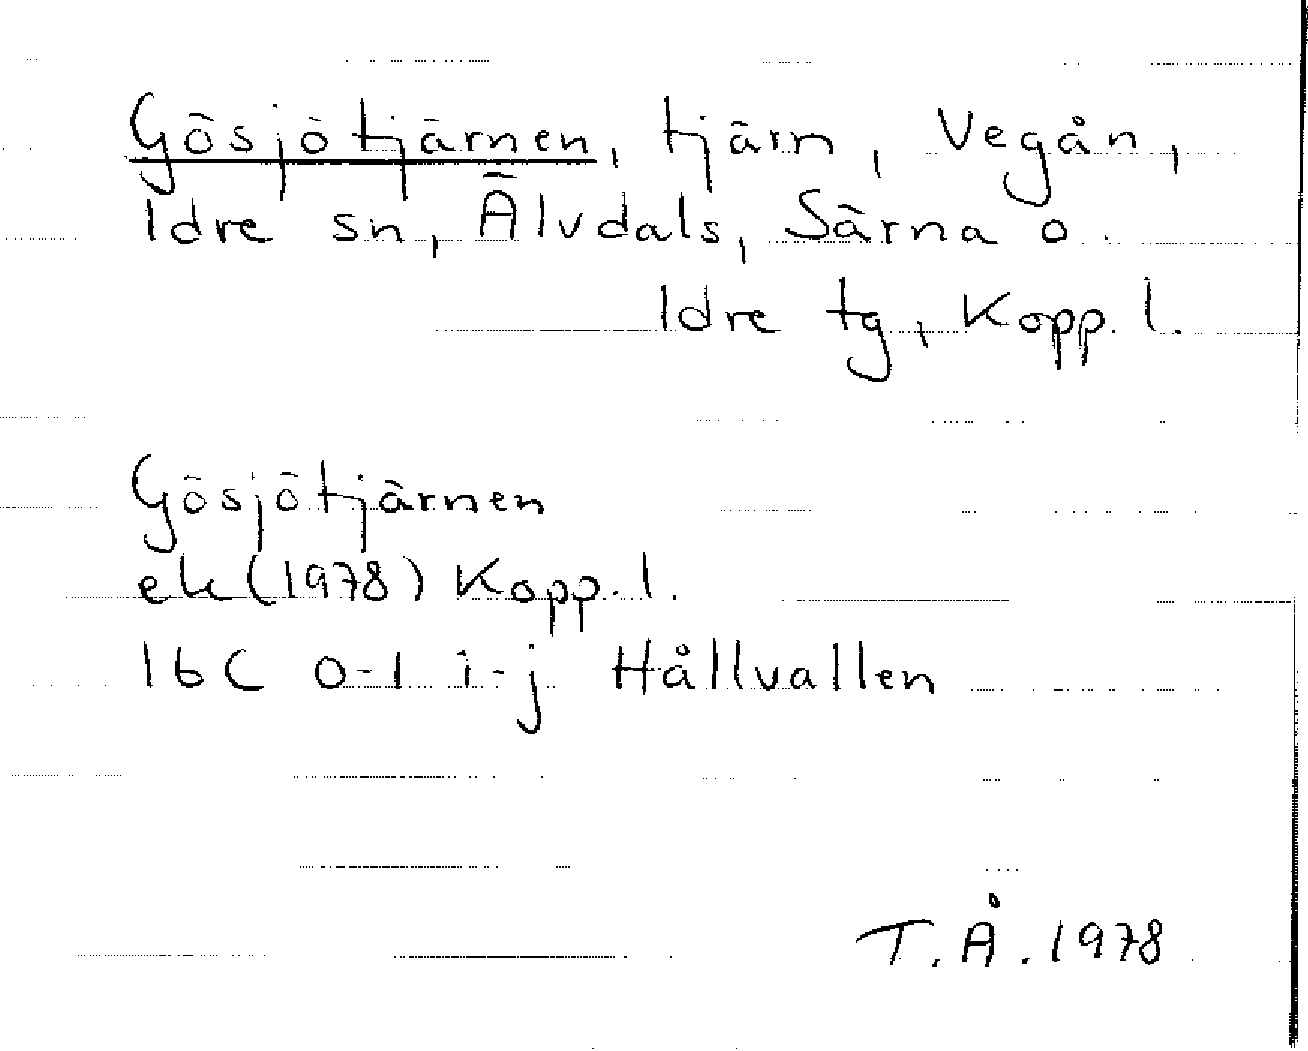 Gösjötjärnen, tjärn, Vegån,
Idre sn, Älvdals, Särna o.
Idre tg, Kopp. l.
Gösjötjärnen
ek (1978) Kopp. l.
16C 0-1 i-j Hållvallen
T.Å. 1978